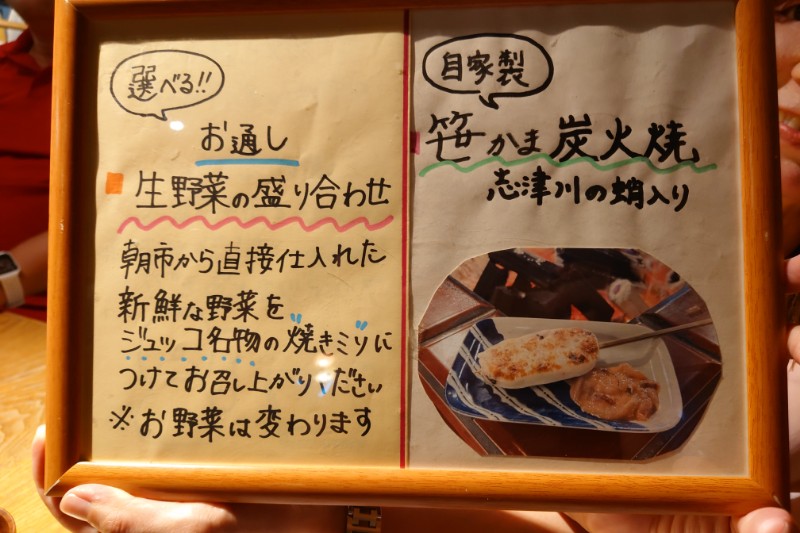 選べる!!
お通し
生野菜の盛り合わせ
朝市から直接仕入れた
新鮮な野菜を
ジュッコ名物の焼きミソに
つけてお召し上がりください
※お野菜は変わります
自家製
笹かま炭火焼
志津川の蛸入り